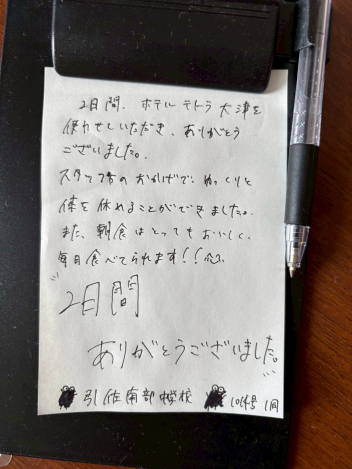 2日間、ホテルテトラ大津を
使わせていただき、ありがとう
ございました。
スタッフ方のおかげで、ゆっくりと
体を休めることができました。
また、朝食はとってもおいしく、
毎日食べてられます!!
2日間
ありがとうございました。
引佐南部中学校 1014号 1同